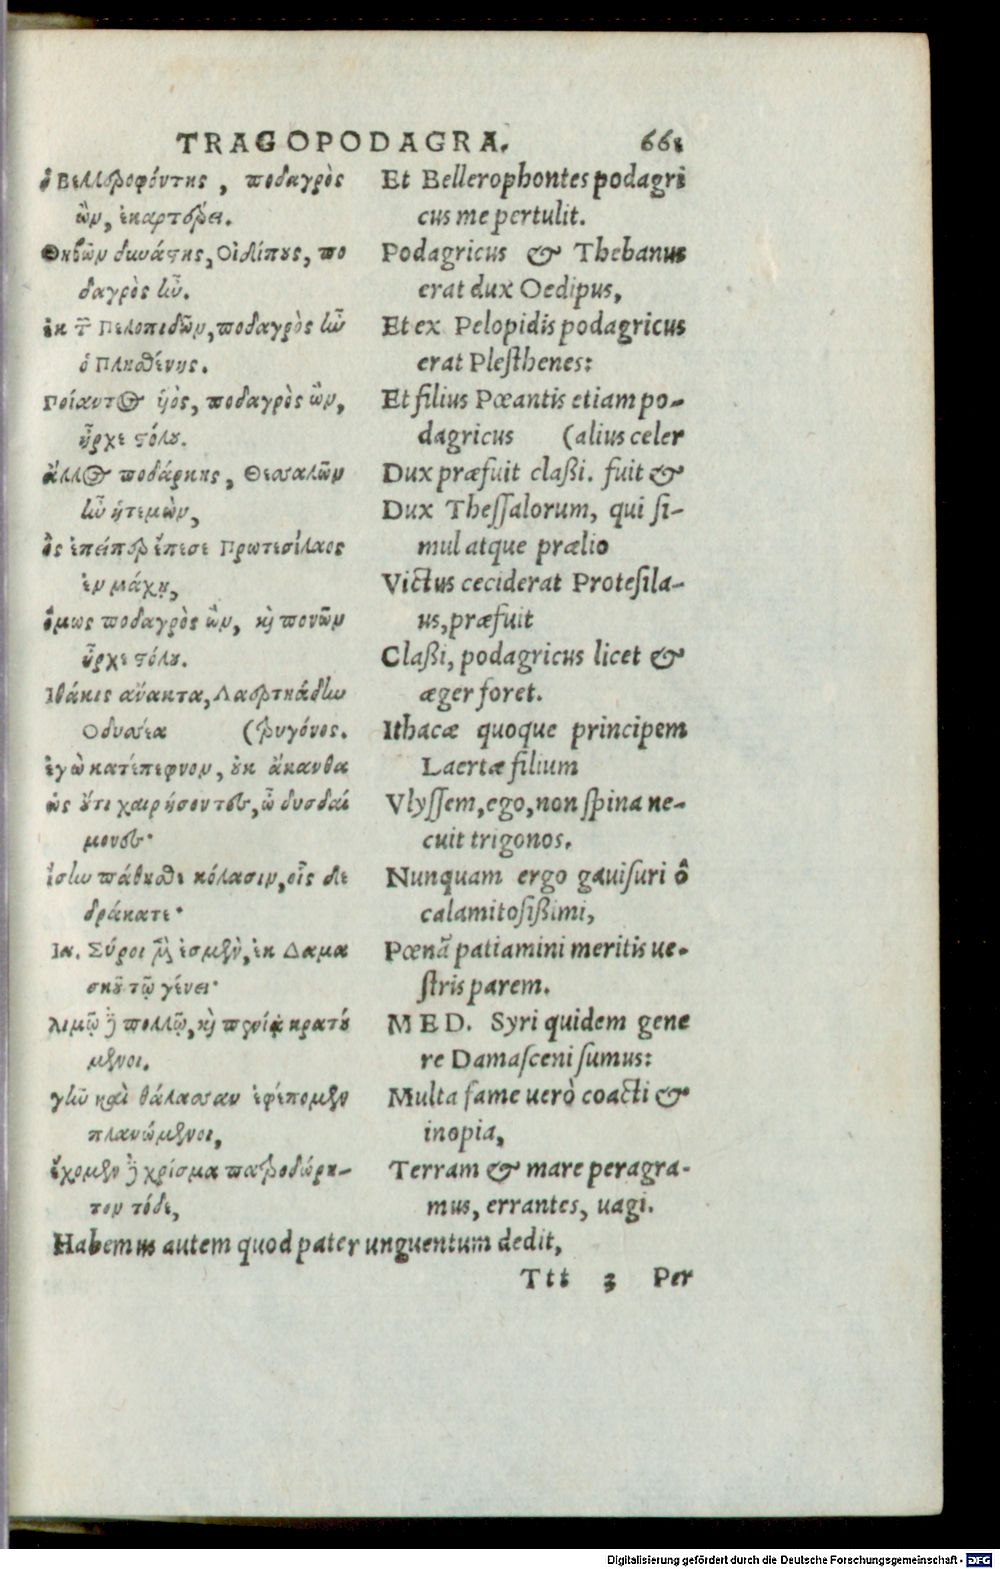 TRAGOPODAGRA. 661
ὁ Βελλεροφόντης, ποδαγρὸς
ὢν, ἐκαρτέρει.
Θηβῶν δυνάστης, Οἰδίπους, πο
δαγρὸς ἦν.
ἐκ τῶν Πελοπιδῶν, ποδαγρὸς ἦν
ὁ Πλησθένης.
Ποίαντος ὑὸς, ποδαγρὸς ὢν,
ἦρχε στόλου.
ἄλλος ποδάρκης, Θεσσαλῶν
ἦν ἡγεμὼν,
ὃς ἐπείπερ ἔπεσε Πρωτεσίλαος
ἐν μάχῃ,
ὅμως ποδαγρὸς ὢν, καὶ πονῶν
ἦρχε στόλου.
Ἰθάκης ἄνακτα, Λαερτιάδην
Ὀδυσσέα (τρυγόνος.
ἐγὼ κατέπεφνον, οὐκ ἄκανθα
ὡς οὔτι χαιρήσοντες, ὦ δυσδαί
μονες·
ἴσην πάθησθε κόλασιν, οἷς δε
δράκατε·
Ια. Σύροι μέν ἐσμεν, ἐκ Δαμα
σκοῦ τῷ γένει·
λιμῷ δὲ πολλῷ, καὶ πενίᾳ κρατού
μενοι.
γῆν καὶ θάλασσαν ἐφέπομεν
πλανώμενοι,
ἔχομεν δὲ χρίσμα πατροδώρη-
τον τόδε,
Et Bellerophontes podagri
cus me pertulit.
Podagricus & Thebanus
erat dux Oedipus,
Et ex Pelopidis podagricus
erat Plesthenes:
Et filius Pœantis etiam po-
dagricus (alius celer
Dux præfuit classi. fuit &
Dux Thessalorum, qui si-
mul atque prælio
Victus ceciderat Protesila-
us, præfuit
Classi, podagricus licet &
æger foret.
Ithacæ quoque principem
Laertæ filium
Vlyssem, ego, non spina ne-
cuit trigonos.
Nunquam ergo gauisuri ô
calamitosissimi,
Pœnã patiamini meritis ue-
stris parem.
MED. Syri quidem gene
re Damasceni sumus:
Multa fame uerò coacti &
inopia,
Terram & mare peragra-
mus, errantes, uagi.
Habemus autem quod pater unguentum dedit,
Ttt 3 Per
Digitalisierung gefördert durch die Deutsche Forschungsgemeinschaft - DFG